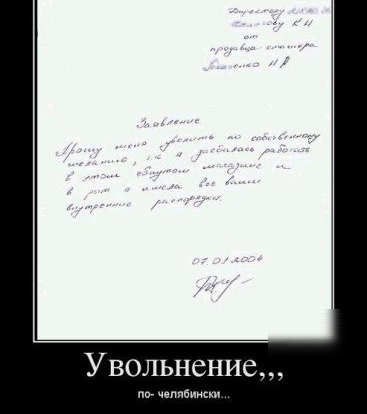 Директору
К И
от
продавца стажера
Н А
Заявление
Прошу меня уволить по собственному
желанию, т.к я заебалась работать
в этом ебнутом магазине и
в рот я имела все ваши
внутренние распорядки.
07.01.2004
Увольнение,,,
по- челябински...